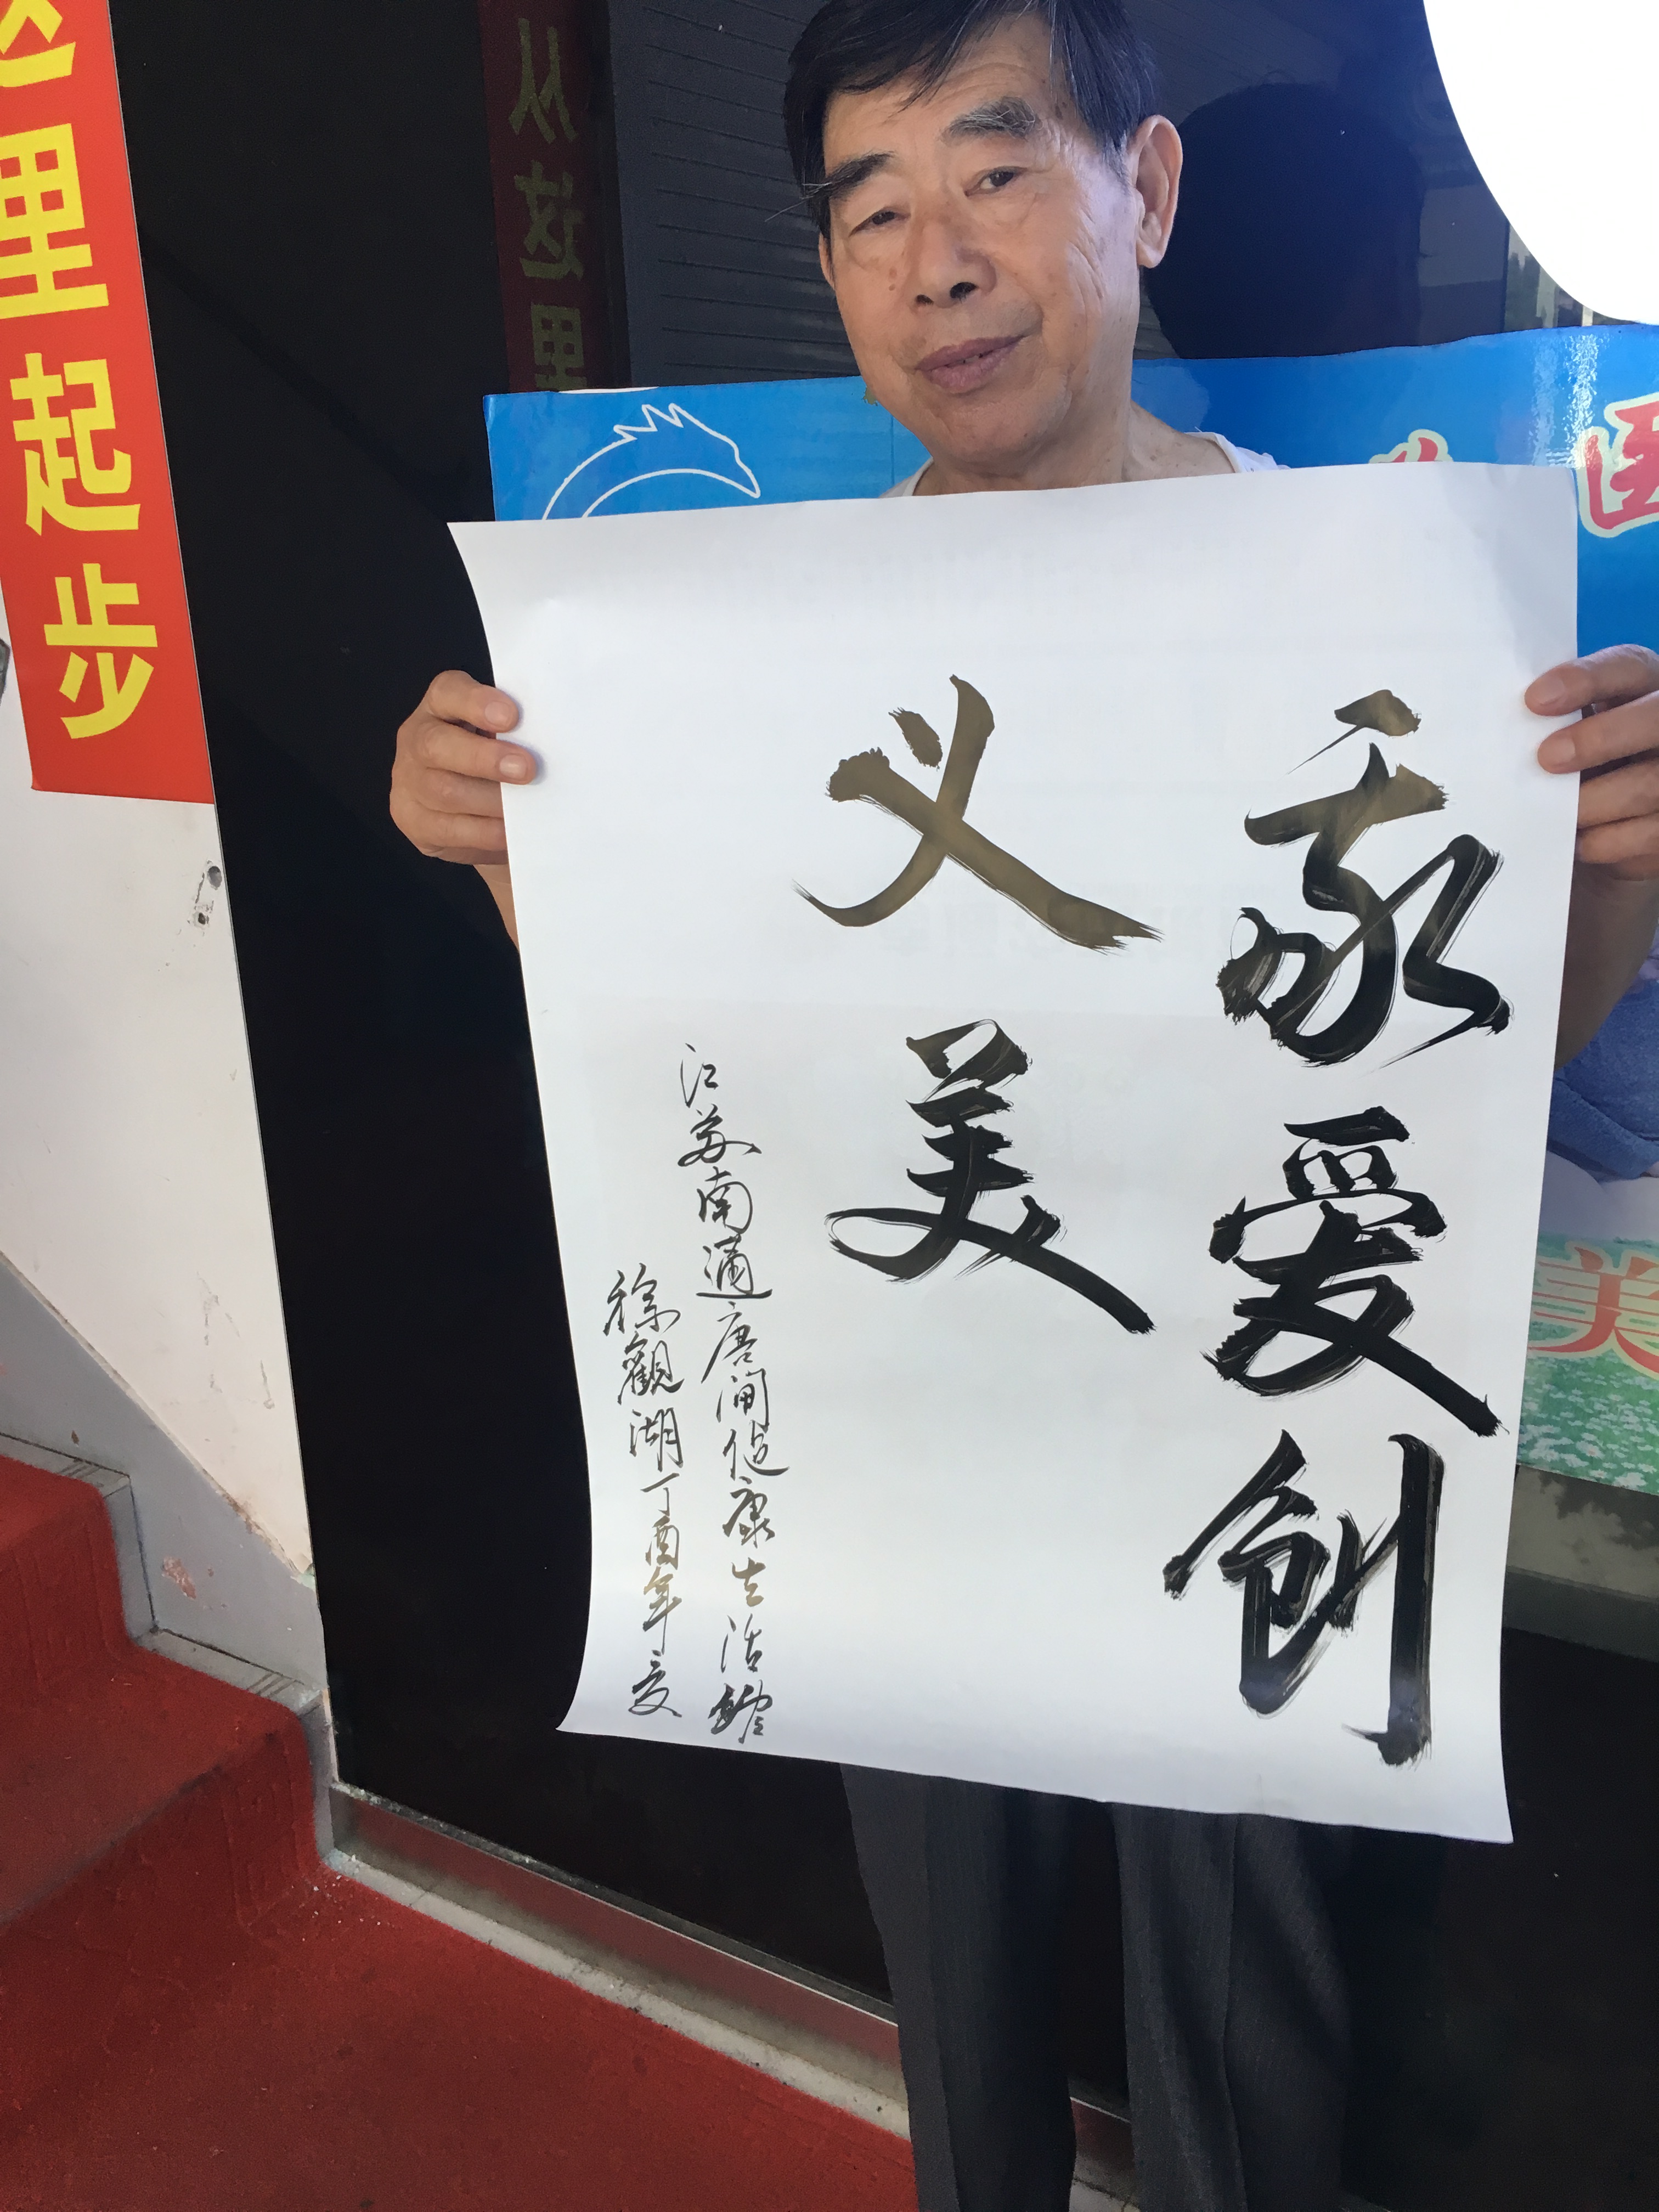 里起步
从这里
永爱创
义美
江苏南通唐闸健康生活馆
徐觀湖丁酉年夏
美